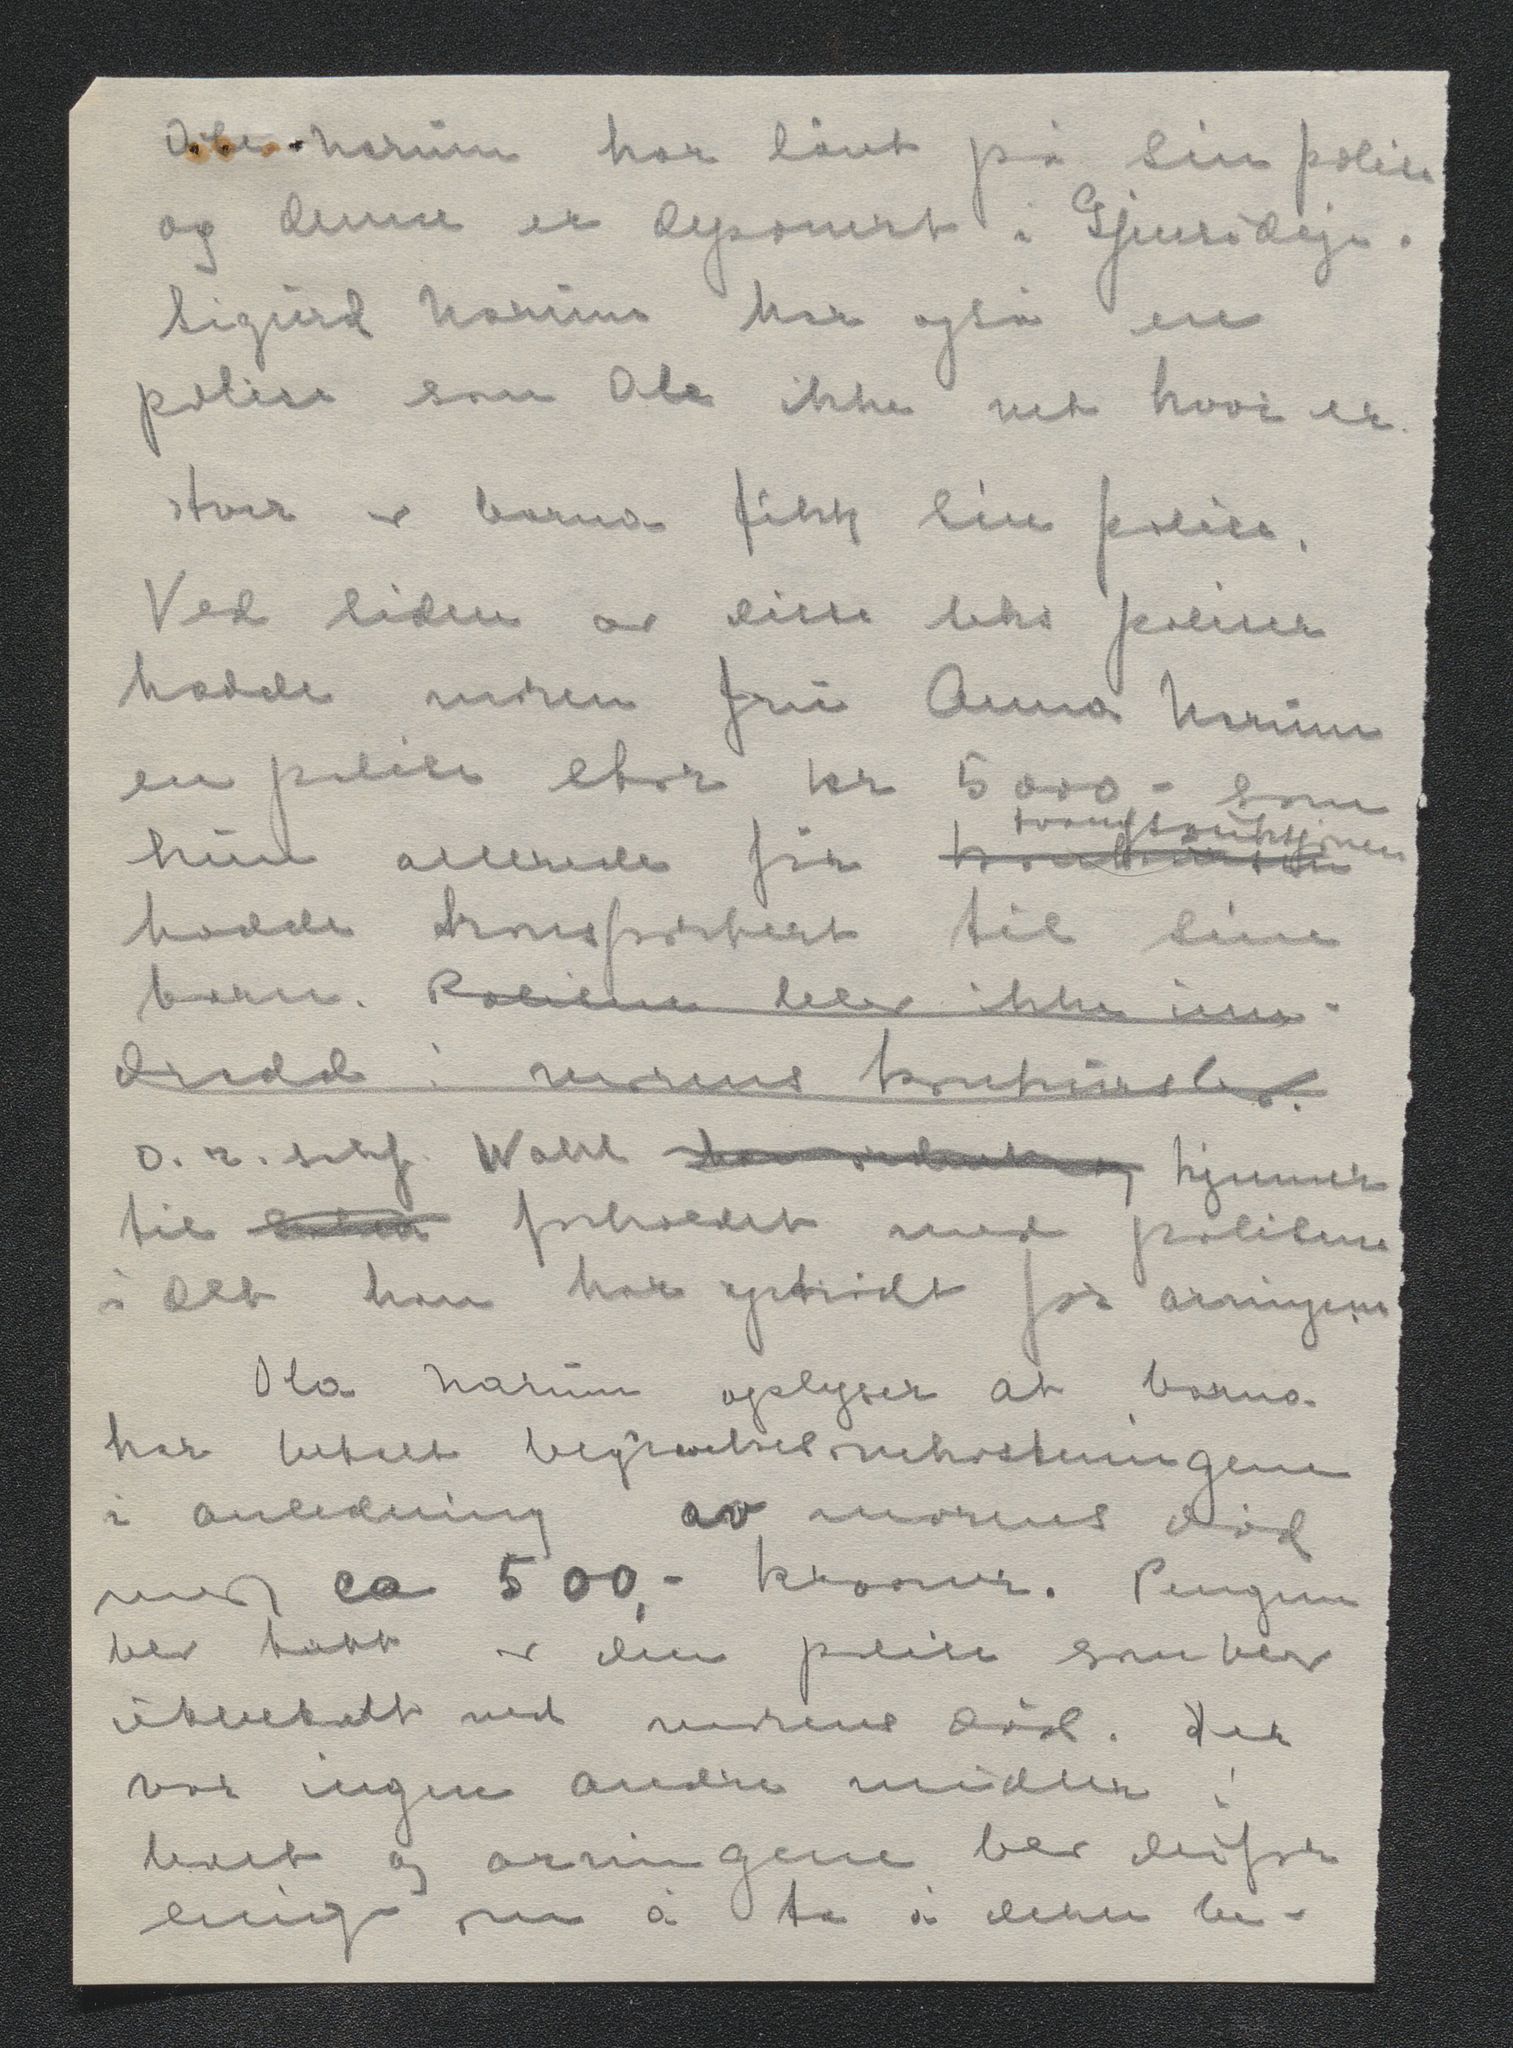 Ole Narum har lånt på sin polise
og denne er deponert i
Sigurd Narum har også en
polise som Ole ikke vet hvor er.
Hver av barna fikk sin polise.
Ved siden av disse seks poliser
hadde moren fru Anna Narum
en polise stor kr 5000,- som
tvangsauksjonen
hun allerede før
hadde transportert til sine
barn. Polisene blev ikke inn-
dradd i morens konkursbo.
o.r.sakf. Wahl kjenner
til forholdet med polisene
i det han har optrådt for arvingene
Ola Narum oplyser at barna
har betalt begravelsesomkostningene
i anledning av morens død
med ca 500,- kroner. Pengene
blev tatt av den polise som blev
utbetalt ved morens død. Der
var ingen andre midler i
boet og arvingene blev derfor
enig om å ta dette be-